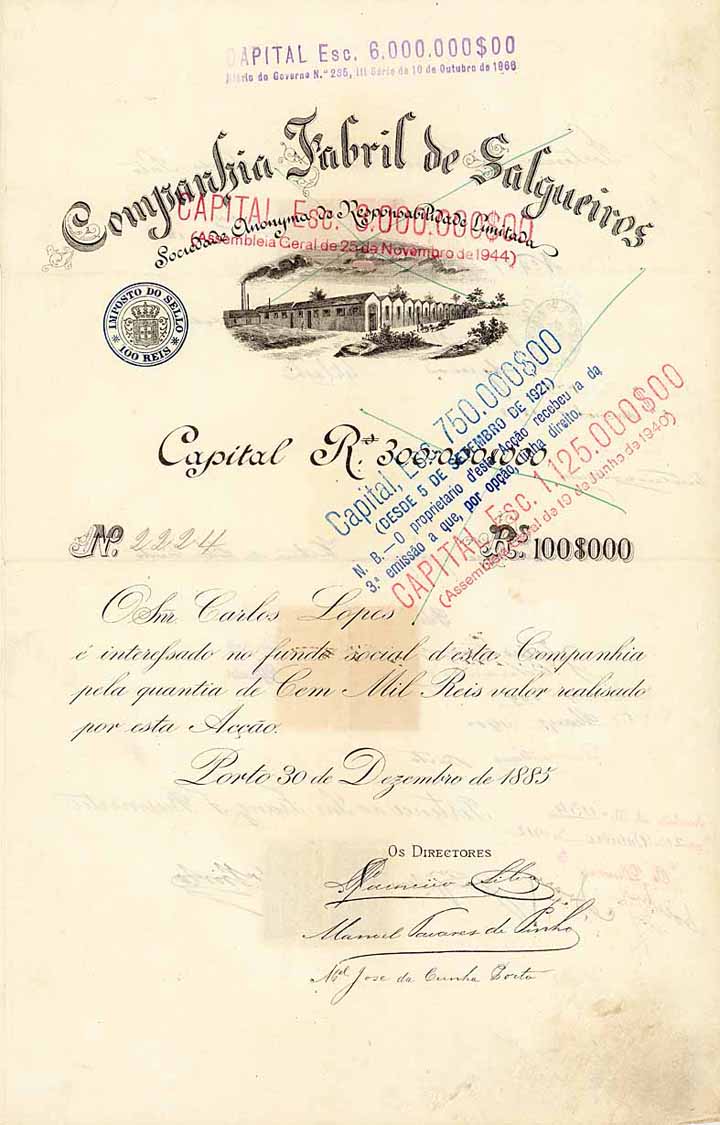 CAPITAL Esc. 6.000.000$00
Diário do Governo N.º 235, III Série de 10 de Outubro de 1966
Companhia Fabril de Salgueiros
CAPITAL Esc. 3.000.000$00
Sociedade Anonyma de Responsabilidade Limitada
(Assembleia Geral de 25 de Novembro de 1944)
IMPOSTO DO SELLO
100 REIS
Capital, Esc. 750.000$00
(DESDE 5 DE SETEMBRO DE 1921)
N. B.—O proprietario d'esta Acção recebeu já da
3.ª emissão a que, por opção, tinha direito.
CAPITAL Esc. 1.125.000$00
(Assembleia Geral de 10 de Junho de 1940)
Capital Rs. 300:000$000
Nº. 2224
Rs. 100$000
O Snr. Carlos Lopes
é interessado no fundo social d'esta Companhia
pela quantia de Cem Mil Reis valor realisado
por esta Acção.
Porto 30 de Dezembro de 1885
Os Directores
Manuel Tavares de Pinho
Mel. Jose da Cunha Porto